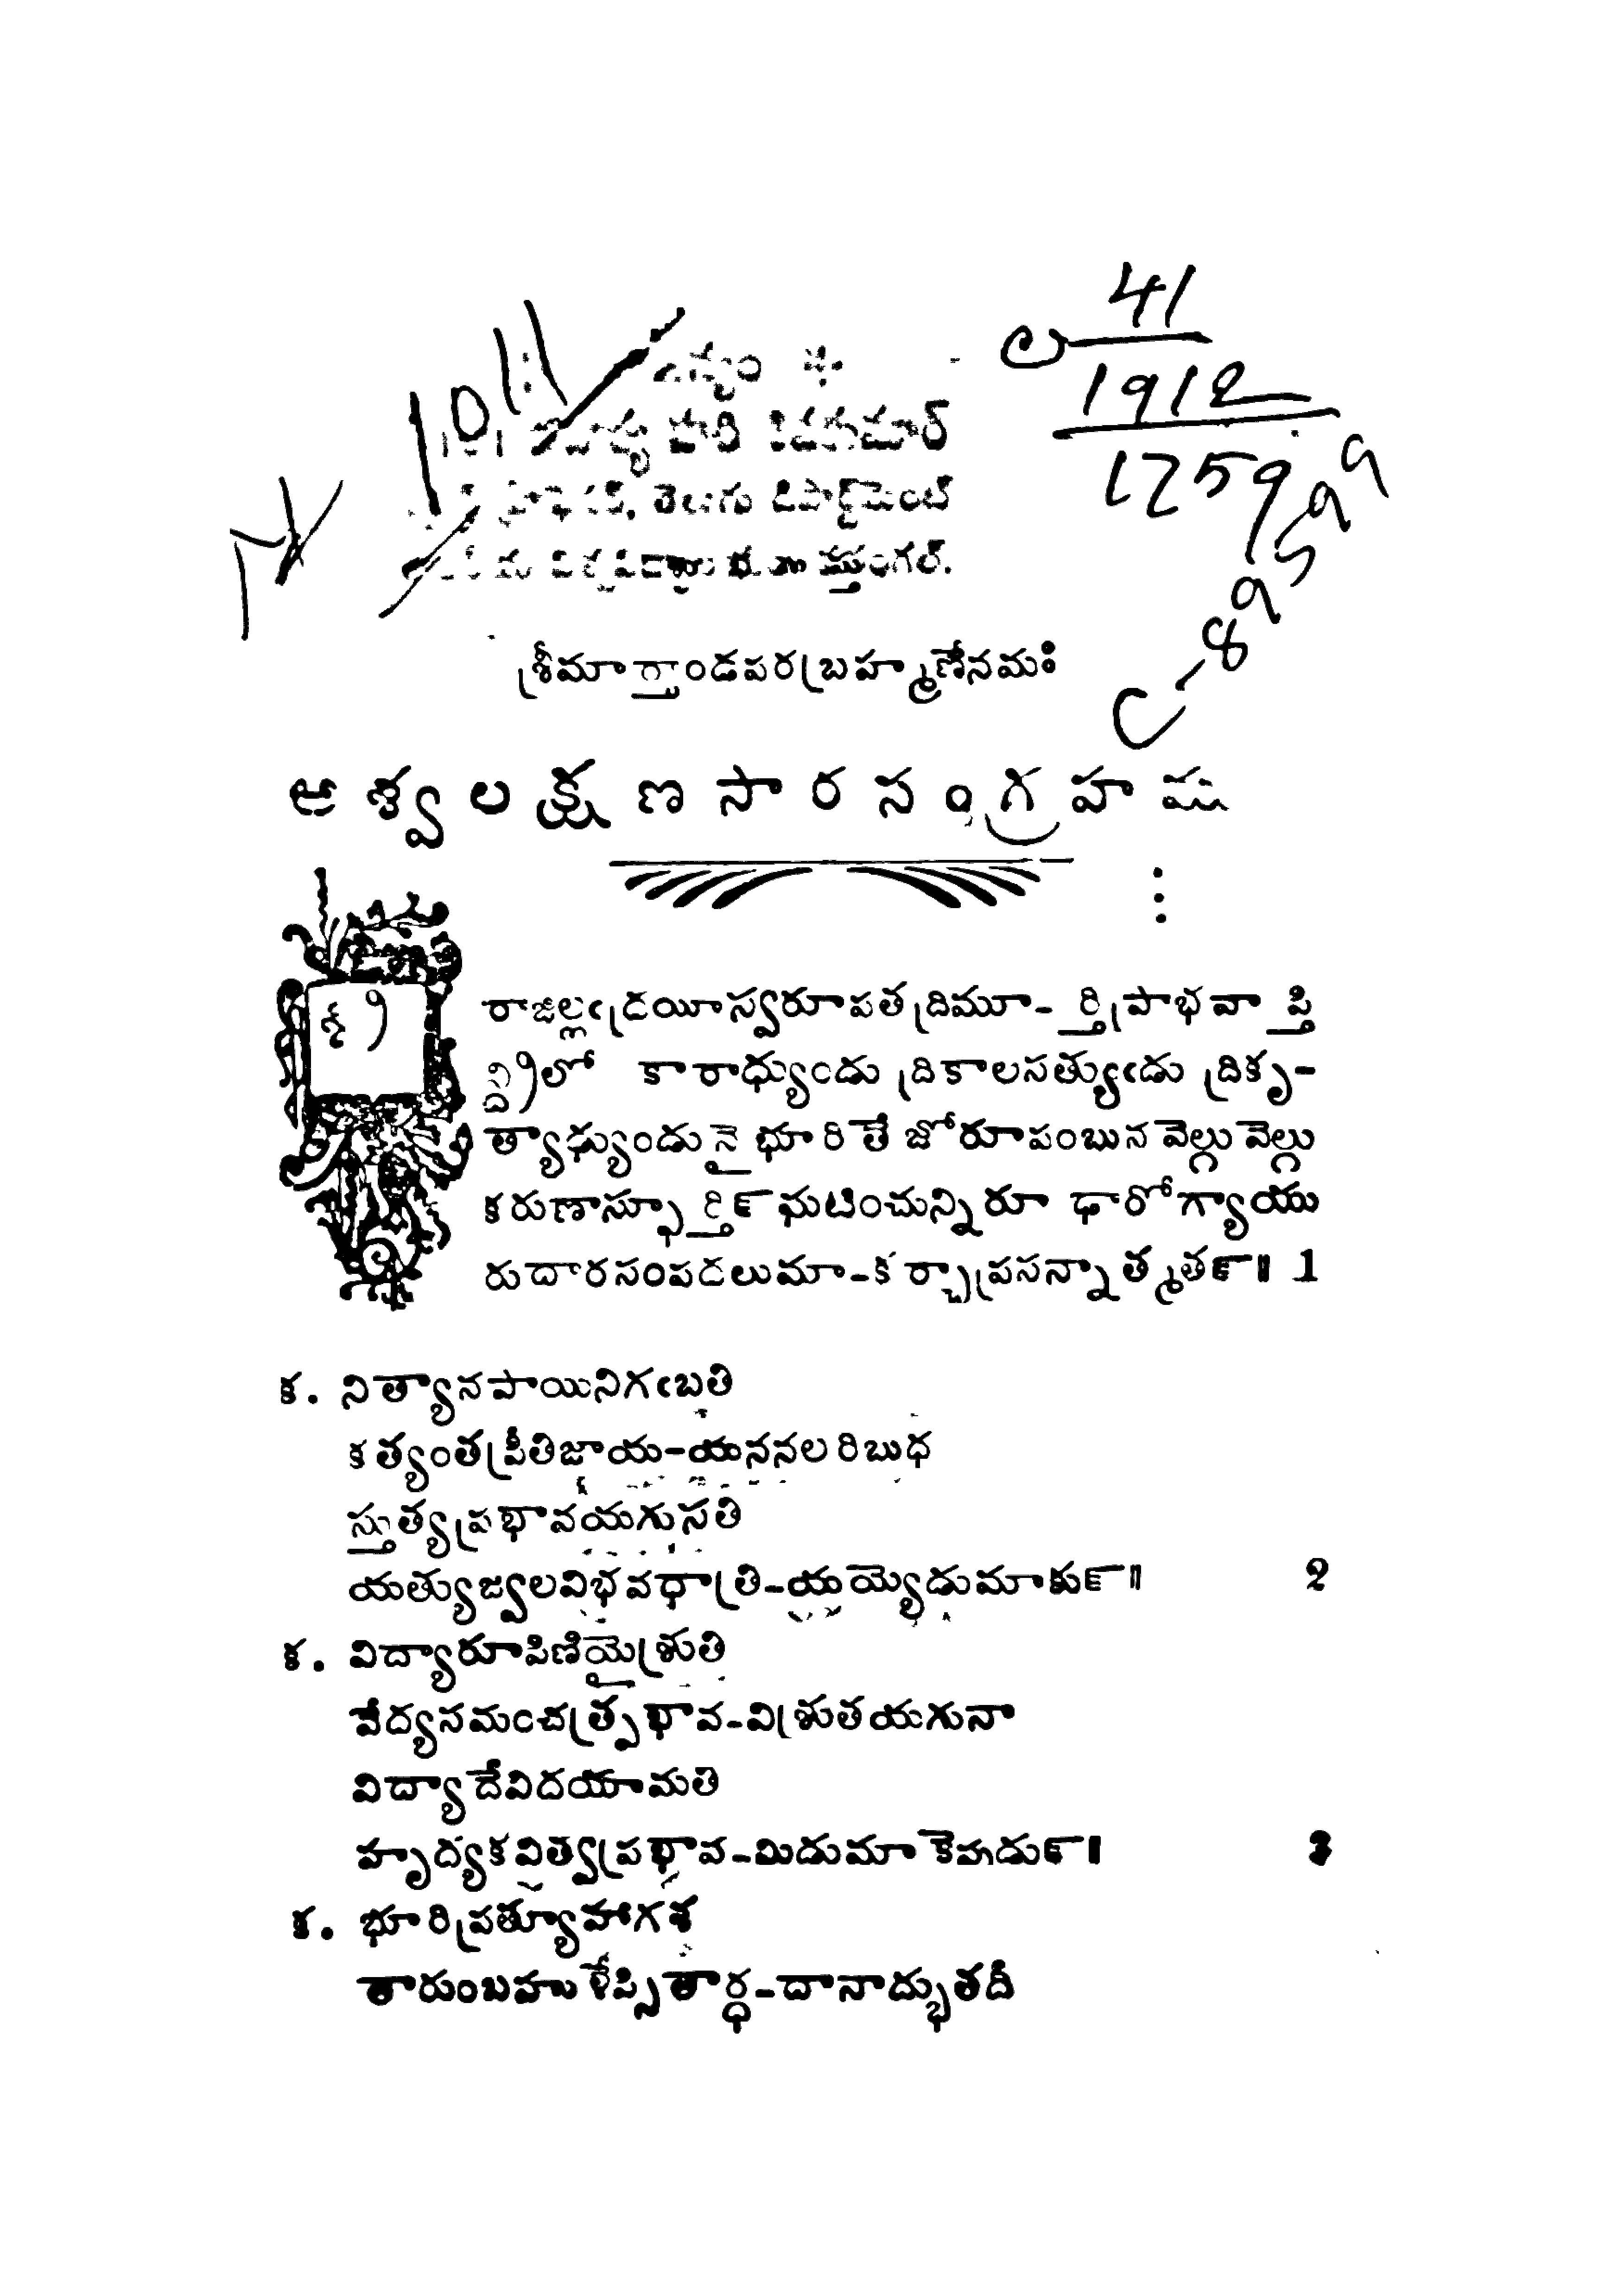 41
1912
1259
C-89599
తెలుగు డిపార్ట్‌మెంట్
శ్రీమార్తాండపరబ్రహ్మణేనమః
అశ్వలక్షణసారసంగ్రహము
శ్రీ
రాజిల్లఁద్రయీస్వరూపతద్రిమూ-ర్తిప్రాభవాప్తి
న్ద్రిలో కారాధ్యుండు ద్రికాలసత్యుఁడు ద్రికృ-
త్యాఢ్యుండునై భూరితేజోరూపంబునవెల్గువెల్గు
కరుణాస్ఫూర్తి౯ఘటించున్నిరూఢారోగ్యాయు
రుదారసంపదలుమా-కర్చాప్రసన్నాత్మత౯॥ 1
క. నిత్యానపాయినిగఁబతి
కత్యంతప్రీతిజ్ఛాయ-యననలరిబుధ
స్తుత్యప్రభావయగుసతి
యత్యుజ్వలవిభవధాత్రి-యయ్యెడుమాకు౯॥ 2
క. విద్యారూపిణియైశ్రుతి
వేద్యసమంచత్ప్రభావ-విశ్రుతయగునా
విద్యాదేవిదయామతి
హృద్యకవిత్వప్రభావ-మిడుమాకెపుడు౯॥ 3
క. భూరిప్రత్యూహాగశ
తారుంబహుళేప్సితార్ధ-దానాద్భుతదీ